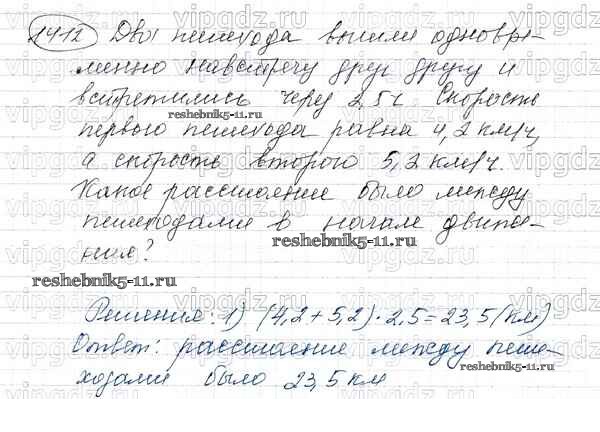 1412 Два пешехода вышли одновре-
менно навстречу друг другу и
встретились через 2,5 ч. Скорость
первого пешехода равна 4,2 км/ч,
а скорость второго 5,2 км/ч.
Какое расстояние было между
пешеходами в начале движе-
ния?
reshebnik5-11.ru
reshebnik5-11.ru
reshebnik5-11.ru
Решение: 1) (4,2 + 5,2) · 2,5 = 23,5 (км)
Ответ: расстояние между пеше-
ходами было 23,5 км
reshebnik5-11.ru
vipgdz